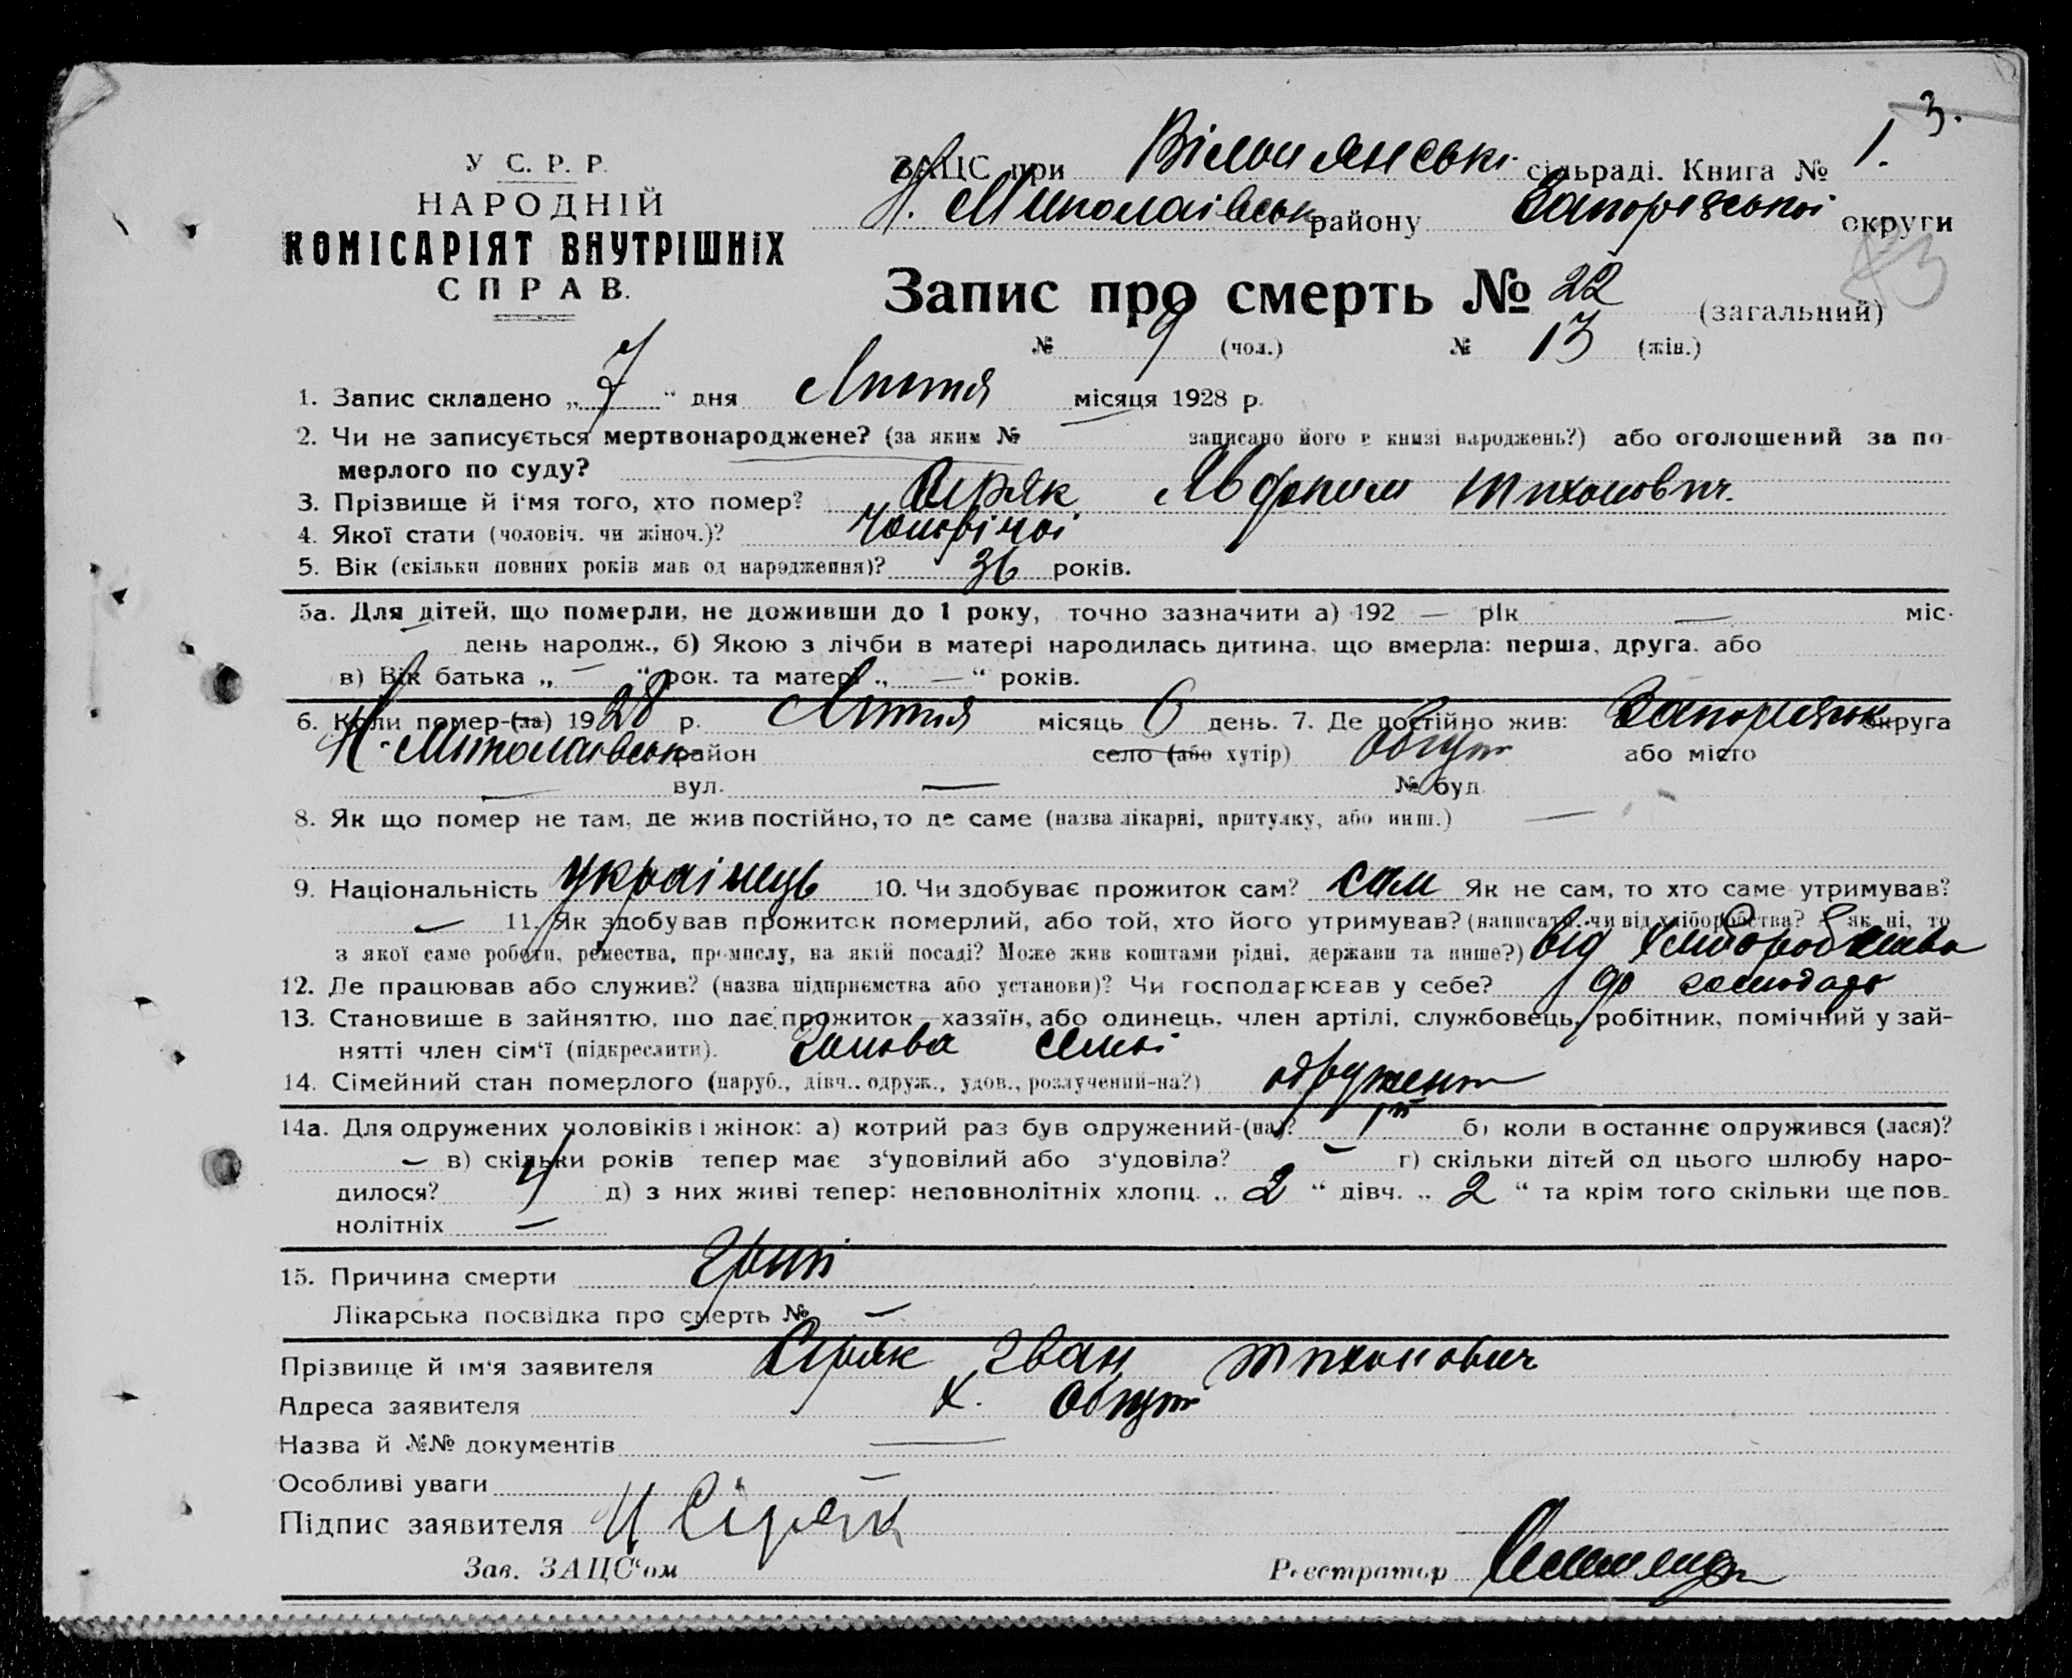 3.
У С. Р. Р.
НАРОДНІЙ
КОМІСАРІЯТ ВНУТРІШНІХ
СПРАВ.
ЗАЦС при сільраді. Книга № 1.
Н. Миколаівськ району Запорізької округи
Запис про смерть № 22 (загальний)
№ 9 (чол.) № 13 (жін.)
1. Запис складено „ 7 “ дня Лютня місяця 1928 р.
2. Чи не записується мертвонароджене? (за яким № — записано його в книзі народжень?) або оголошений за по-
мерлого по суду?
3. Прізвище й і'мя того, хто помер? Сіряк Тихонович.
4. Якої стати (чоловіч. чи жіноч.)? чоловічої
5. Вік (скільки повних років мав од народження)? 36 років.
5а. Для дітей, що померли, не доживши до 1 року, точно зазначити а) 192 — рік — міс.
— день народж., б) Якою з лічби в матері народилась дитина, що вмерла: перша, друга, або
в) Вік батька „ — “ рок. та матері „ — “ років.
6. Коли помер-(ла) 1928 р. Лютня місяць 6 день. 7. Де постійно жив: Запорізьк округа
Н-Миколаівськ район село (або хутір) Обчут або місто
— вул. — № буд.
8. Як що помер не там, де жив постійно, то де саме (назва лікарні, притулку, або инш.) —
9. Національність українець 10. Чи здобуває прожиток сам? сам Як не сам, то хто саме утримував?
— 11. Як здобував прожиток померлий, або той, хто його утримував? (написати: чи від хліборобства? А як ні, то
з якої саме роботи, ремества, промислу, на якій посаді? Може жив коштами рідні, держави та инше?) від хліборобства
12. Де працював або служив? (назва підприємства або установи)? Чи господарював у себе? господарь
13. Становише в зайняттю, що дає прожиток—хазяїн, або одинець, член артілі, службовець, робітник, помічний у зай-
нятті член сім'ї (підкреслити). Голова сімьі
14. Сімейний стан померлого (паруб., дівч., одруж., удов., розлучений-на?) одружен
14а. Для одружених чоловіків і жінок: а) котрий раз був одружений-(на)? 1й б) коли востаннє одружився (лася)?
— в) скільки років тепер має з'удовілий або з'удовіла? — г) скільки дітей од цього шлюбу наро-
дилося? 4 д) з них живі тепер: неповнолітніх хлопц. „ 2 “ дівч. „ 2 “ та крім того скільки ще пов-
нолітніх —
15. Причина смерти Грип
Лікарська посвідка про смерть № —
Прізвище й ім'я заявителя Сіряк Іван Тихонович
Адреса заявителя х. Обчут
Назва й №№ документів —
Особливі уваги —
Підпис заявителя И Сіряк
Зав. ЗАЦС'ом Реєстратор